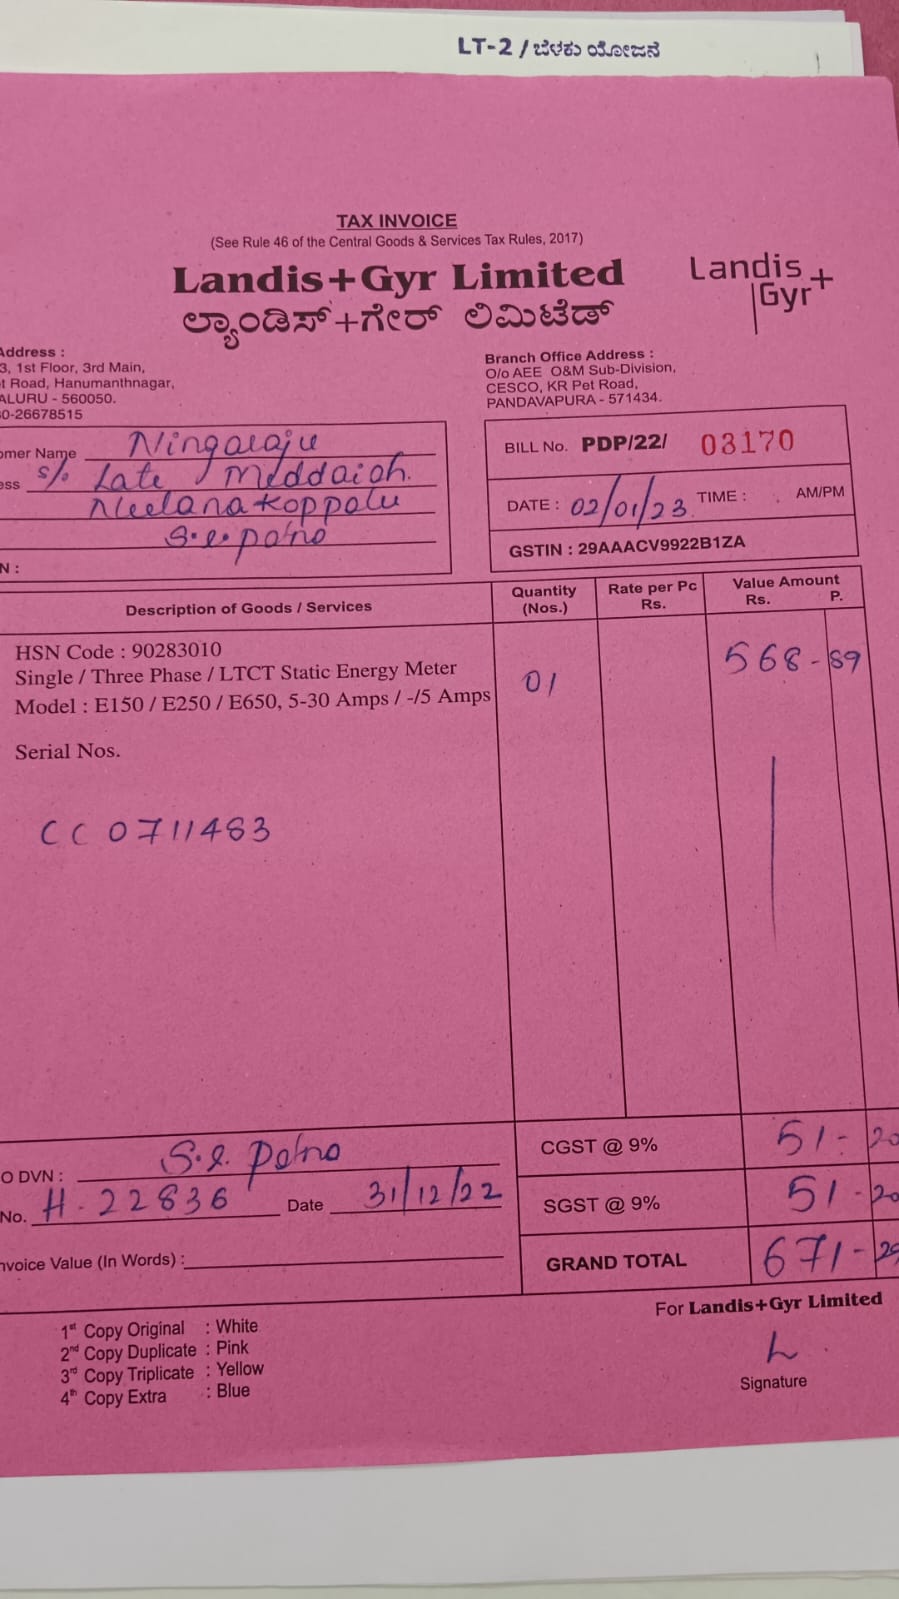 LT-2 / ಬೆಳಕು ಯೋಜನೆ
TAX INVOICE
(See Rule 46 of the Central Goods & Services Tax Rules, 2017)
Landis+Gyr Limited
ಲ್ಯಾಂಡಿಸ್+ಗೇರ್ ಲಿಮಿಟೆಡ್
Landis
Gyr+
Address :
3, 1st Floor, 3rd Main,
t Road, Hanumanthnagar,
ALURU - 560050.
0-26678515
Branch Office Address :
O/o AEE O&M Sub-Division,
CESCO, KR Pet Road,
PANDAVAPURA - 571434.
omer Name Ningaraju
ess S/o Late Middaiah.
Neelanakoppalu
S.R.Patno
N :
BILL No. PDP/22/ 03170
DATE : 02/01/23 TIME : AM/PM
GSTIN : 29AAACV9922B1ZA
Description of Goods / Services Quantity (Nos.) Rate per Pc Rs. Value Amount Rs. P.
HSN Code : 90283010
Single / Three Phase / LTCT Static Energy Meter
Model : E150 / E250 / E650, 5-30 Amps / -/5 Amps 01 568-89
Serial Nos.
CC0711483
O DVN : S.R. Patno
No. H-22836 Date 31/12/22
nvoice Value (In Words) :
CGST @ 9% 51-20
SGST @ 9% 51-20
GRAND TOTAL 671-29
For Landis+Gyr Limited
Signature
1st Copy Original : White
2nd Copy Duplicate : Pink
3rd Copy Triplicate : Yellow
4th Copy Extra : Blue